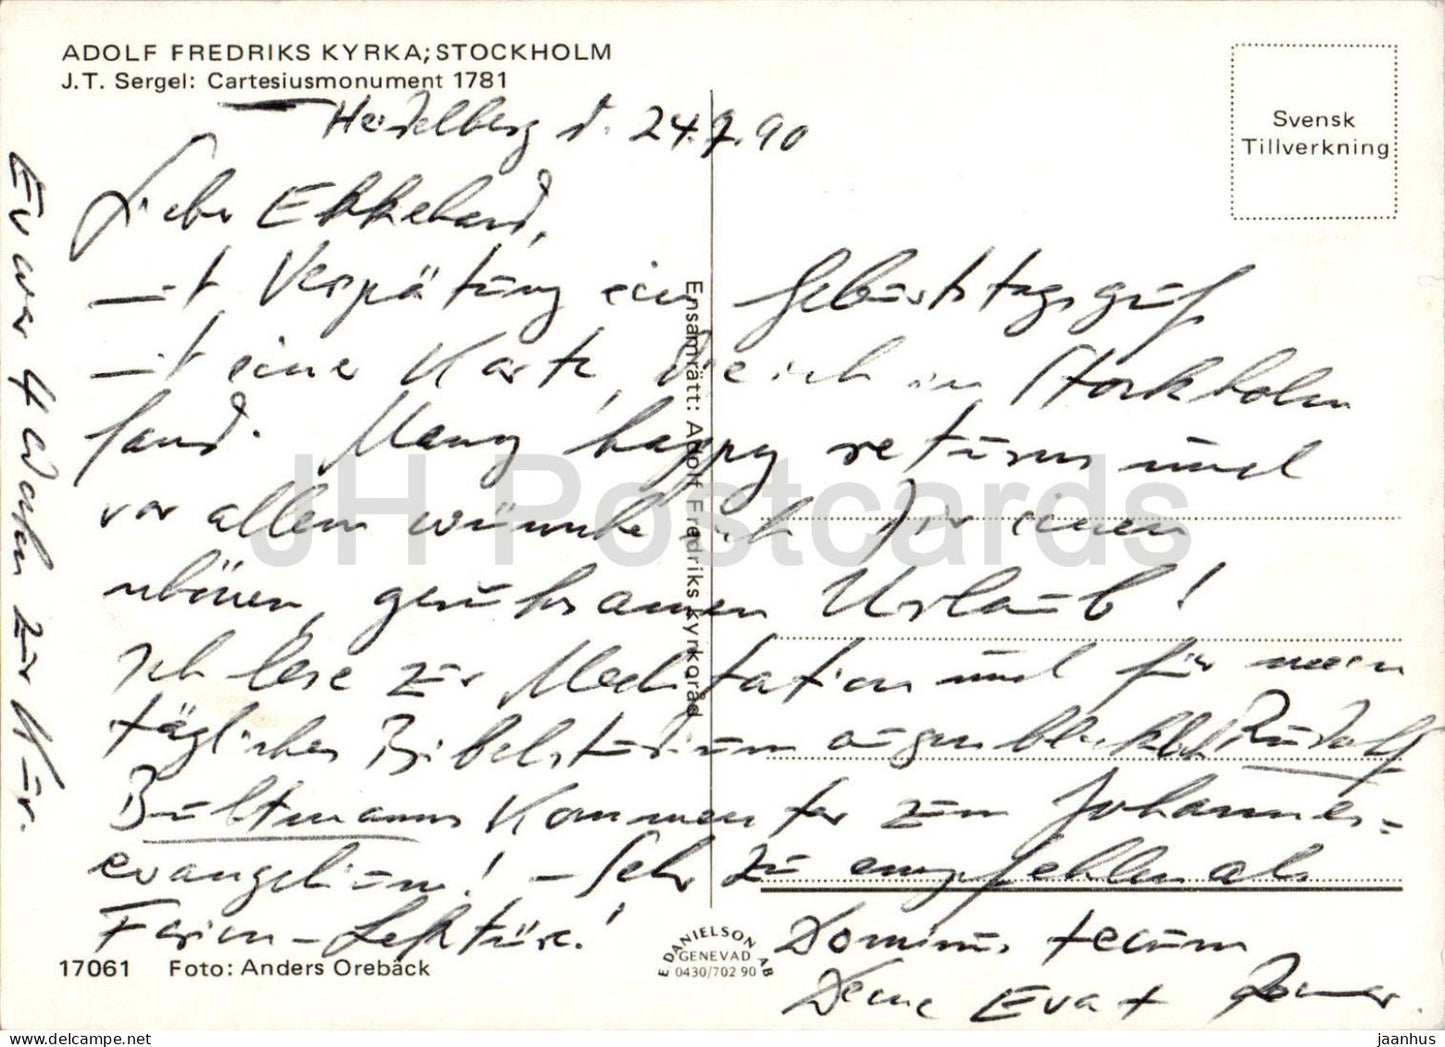 ADOLF FREDRIKS KYRKA; STOCKHOLM
J.T. Sergel: Cartesiusmonument 1781
Svensk
Tillverkning
Heidelberg d. 24.7.90
Lieber Ekkehard,
mit Verspätung ein Geburtstagsgruß
mit einer Karte, die ich in Stockholm
fand. Many happy returns und
vor allem wünsche ich Dir einen
schönen, geruhsamen Urlaub!
Ich lese zur Meditation und für mein
tägliches Bibelstudium augenblicklich Rudolf
Bultmanns Kommentar zum Johannes=
evangelium! – Sehr zu empfehlen als
Ferien-Lektüre!
Dominus tecum
Deine Eva +
Ev war 4 Wochen zur Kur.
Ensamrätt: Adolf Fredriks kyrkoråd
17061 Foto: Anders Orebäck
E. DANIELSON AB
GENEVAD
0430/702 90
JH Postcards
jaanhus